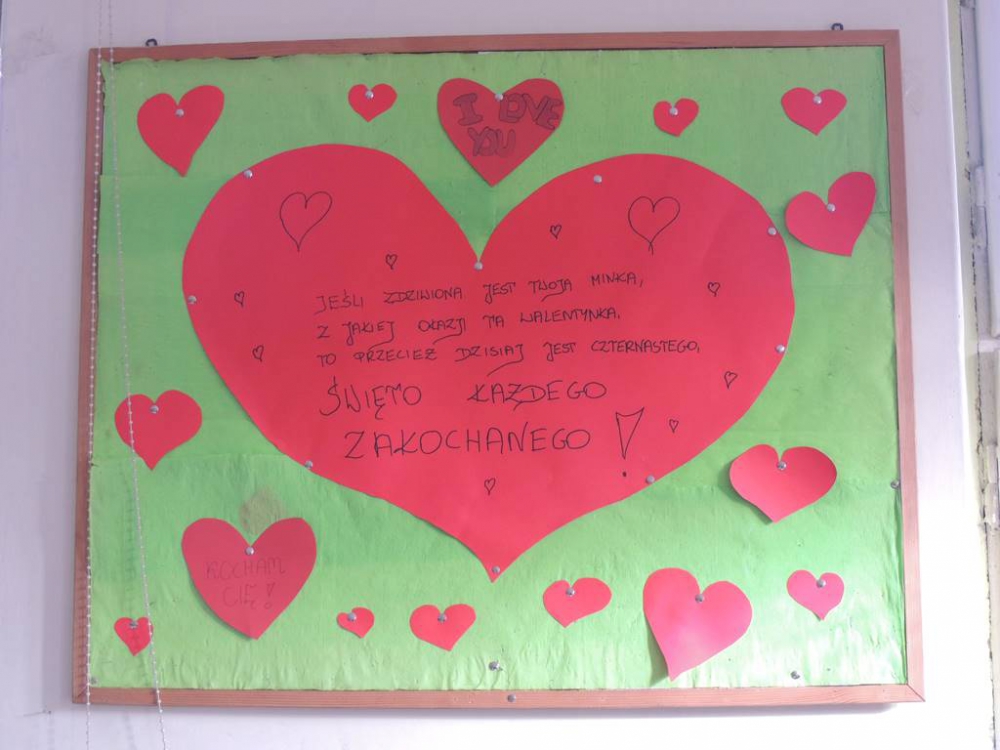 I LOVE
YOU
JEŚLI ZDZIWIONA JEST TWOJA MINKA,
Z JAKIEJ OKAZJI TA WALENTYNKA.
TO PRZECIEŻ DZISIAJ JEST CZTERNASTEGO,
ŚWIĘTO KAŻDEGO
ZAKOCHANEGO!
KOCHAM
CIĘ!